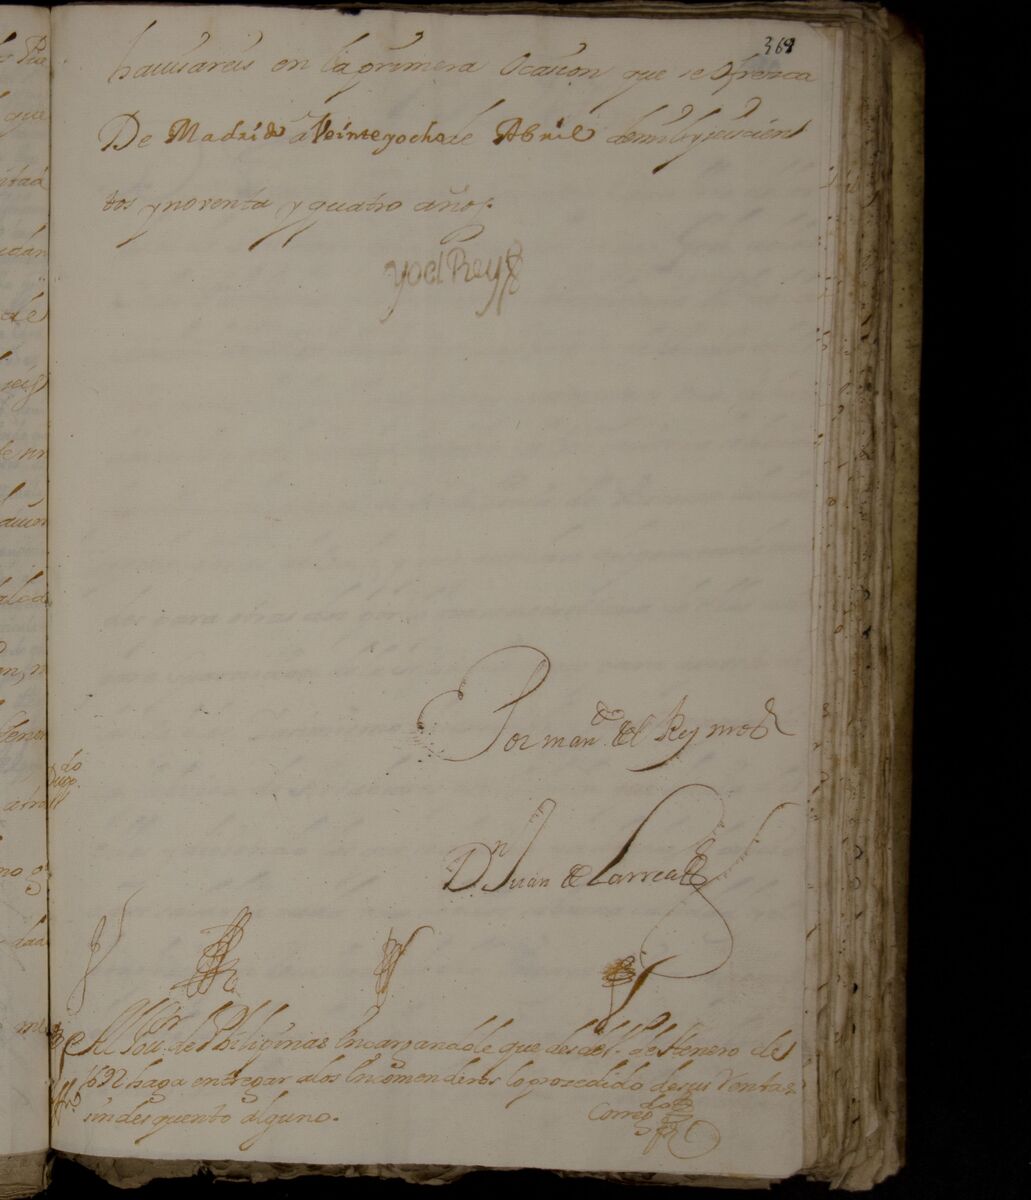 368
havisareis en la primera ocasion que se ofresca
De Madrid a Veinte y ocho de Abril de mil y seiscien
tos y noventa y quatro años.
Yo el Rey
Por man.do del Rey nro S.r
D.n Juan de Larrea
Al Gov.or de Philipinas Encargandole que desde 1.o de Henero de
1692 haga entregar a los Encomenderos lo prosedido de sus Rentas
sin desquento alguno.
Correg.do